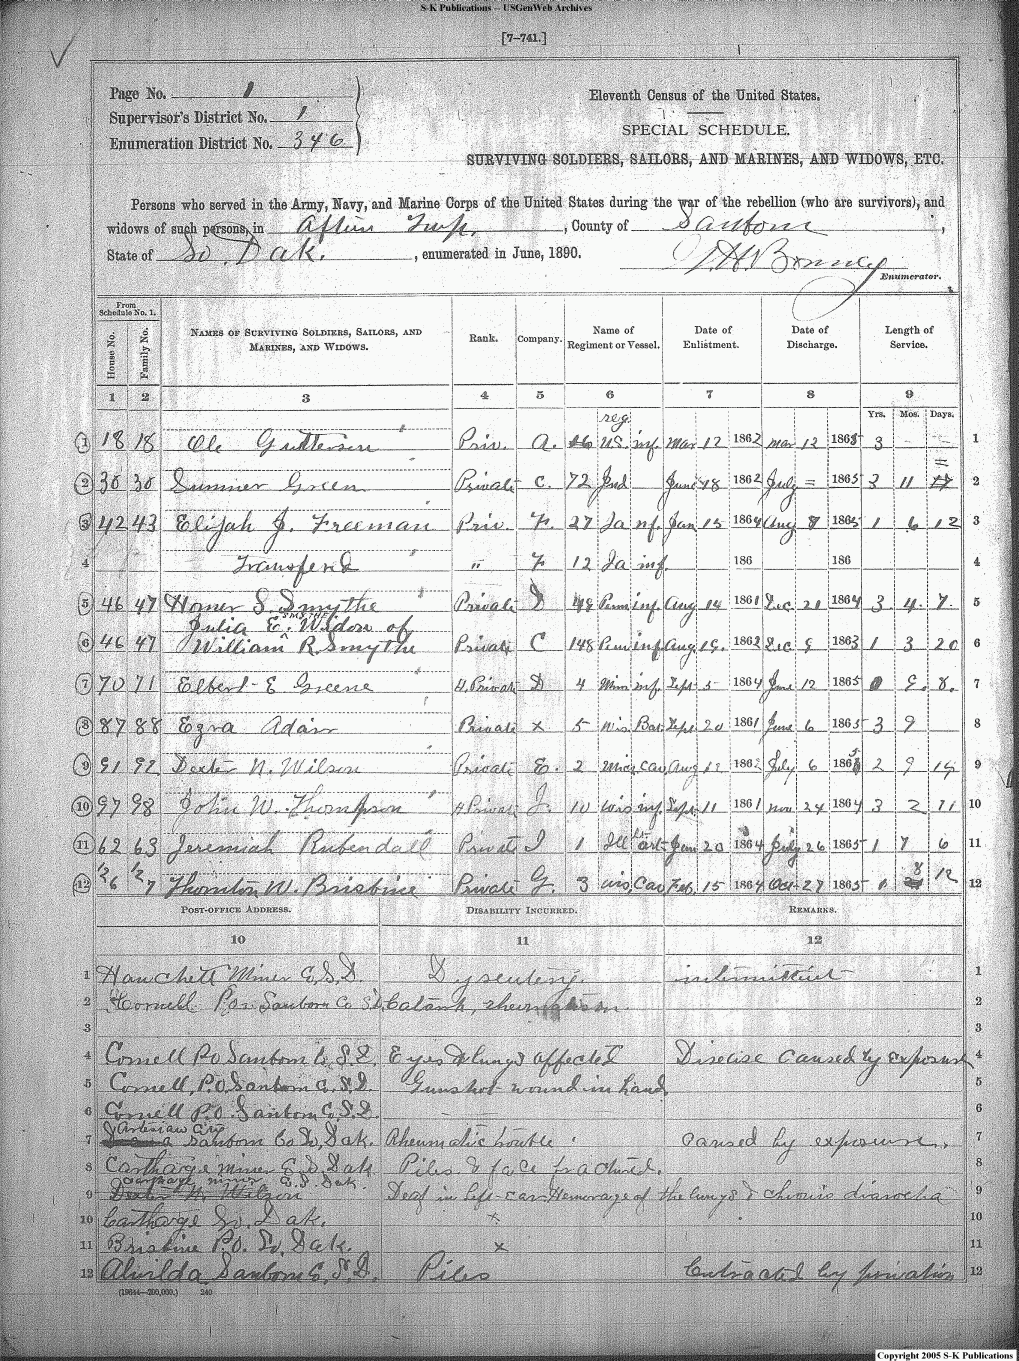 S-K Publications -- USGenWeb Archives
[7-741.]
Page No. 1
Supervisor's District No. 1
Enumeration District No. 346
Eleventh Census of the United States.
SPECIAL SCHEDULE.
SURVIVING SOLDIERS, SAILORS, AND MARINES, AND WIDOWS, ETC.
Persons who served in the Army, Navy, and Marine Corps of the United States during the war of the rebellion (who are survivors), and
widows of such persons, in Afton Twp. , County of Sanborn ,
State of So. Dak. , enumerated in June, 1890.
Enumerator.
From Schedule No. 1.
House No. Family No. NAMES OF SURVIVING SOLDIERS, SAILORS, AND MARINES, AND WIDOWS. Rank. Company. Name of Regiment or Vessel. Date of Enlistment. Date of Discharge. Length of Service.
1 2 3 4 5 6 7 8 9
Yrs. Mos. Days.
reg.
1 18 18 Ole Priv. A. 16 U.S. inf. Mar 12 1862 Mar 12 1865 3 1
2 30 30 Sumner Green Private C. 72 Ind June 18 1862 July = 1865 3 11 2
3 42 43 Elijah J. Freeman Priv. F. 27 Ia inf. Jan 15 1864 Aug 8 1865 1 6 12 3
4 Transferd " F 12 Ia inf. 186 186 4
5 46 47 Homer S. Smythe Private D 149 Penn inf. Aug 14 1861 Dec. 21 1864 3. 4. 7. 5
Julia E. Smythe Widow of
6 46 47 William R. Smythe Private C 148 Penn inf Aug 19. 1862 Dec 9 1863 1 3 20 6
7 70 71 Elbert E Greene H. Private D 4 Min inf. Sept 5 1864 June 12 1865 0 9. 8. 7
8 87 88 Ezra Adair Private x 5 Wis Bat. Sept 20 1861 June 6 1865 3 9 8
9 91 92 Dexter N. Wilson Private E. 2 cav Aug 12 1862 July 6 1865 2 9 14 9
10 97 98 John W. Thompson H Private J. 10 Wis inf. Sept 11 1861 Nov. 24 1864 3 2 11 10
11 62 63 Jeremiah Rubendall Private I 1 Ill Lt art Jan 20 1864 July 26 1865 1 7 6 11
12 126 127 Thornton W. Brisbine Private G. 3 Wis Cav Feb. 15 1864 Oct 27 1865 1 8 12 12
POST-OFFICE ADDRESS. DISABILITY INCURRED. REMARKS.
10 11 12
1 Hanchett Miner C, S, D. Dysentery. intermittent 1
2 Cornell P.o. Sanborn Co S.D. Catarrh, rheumatism. 2
3 3
4 Cornell PO Sanborn Co. S.D. Eyes & lungs affected Disease caused by exposure 4
5 Cornell, P.O. Sanborn Co. S.D. Gunshot wound in hand. 5
6 Cornell P.O. Sanborn Co. S.D. 6
Artesian City
7 Sanborn Co So, Dak. Rheumatic trouble caused by exposure. 7
8 Carthage Miner C. S. Dak Piles & face fractured. 8
Carthage Miner C. S. Dak.
9 Dexter N. Wilson Deaf in left ear Hemorage of the lungs & chronic diarrohea 9
10 Carthage So. Dak. x 10
11 Brisbine P.O. So, Dak. x 11
12 Alwilda Sanborn Co, S, D. Piles Contracted by privation 12
(19644—200,000.) 240
Copyright 2005 S-K Publications